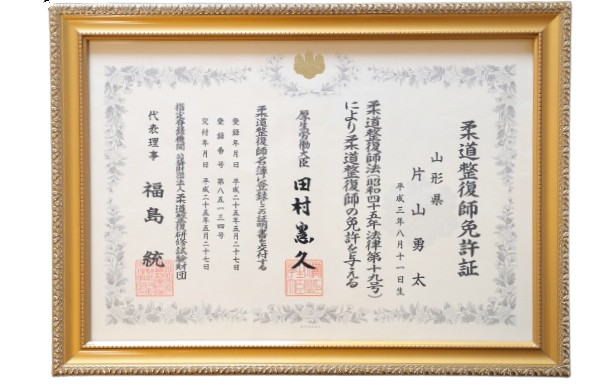 柔道整復師免許証
山形県
片山勇太
平成三年八月十一日生
柔道整復師法(昭和四十五年法律第十九号)
により柔道整復師の免許を与える
厚生労働大臣 田村憲久
柔道整復師名簿に登録しこの証明書を交付する
登録年月日 平成二十五年五月二十七日
登録番号 第八五一三四号
交付年月日 平成二十五年五月二十七日
指定登録機関 公益財団法人柔道整復研修試験財団
代表理事 福島統